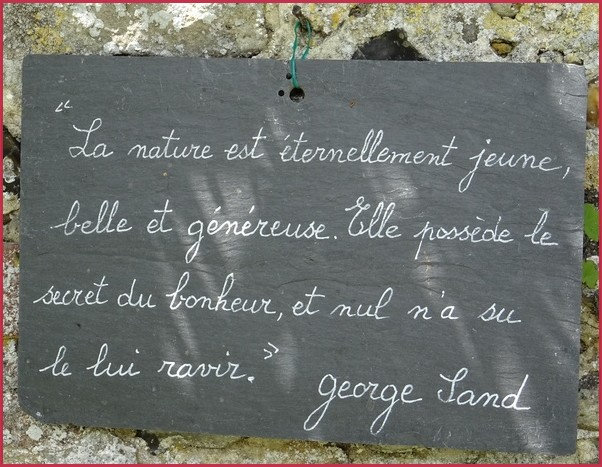 “La nature est éternellement jeune,
belle et généreuse. Elle possède le
secret du bonheur, et nul n'a su
le lui ravir.”
george Sand